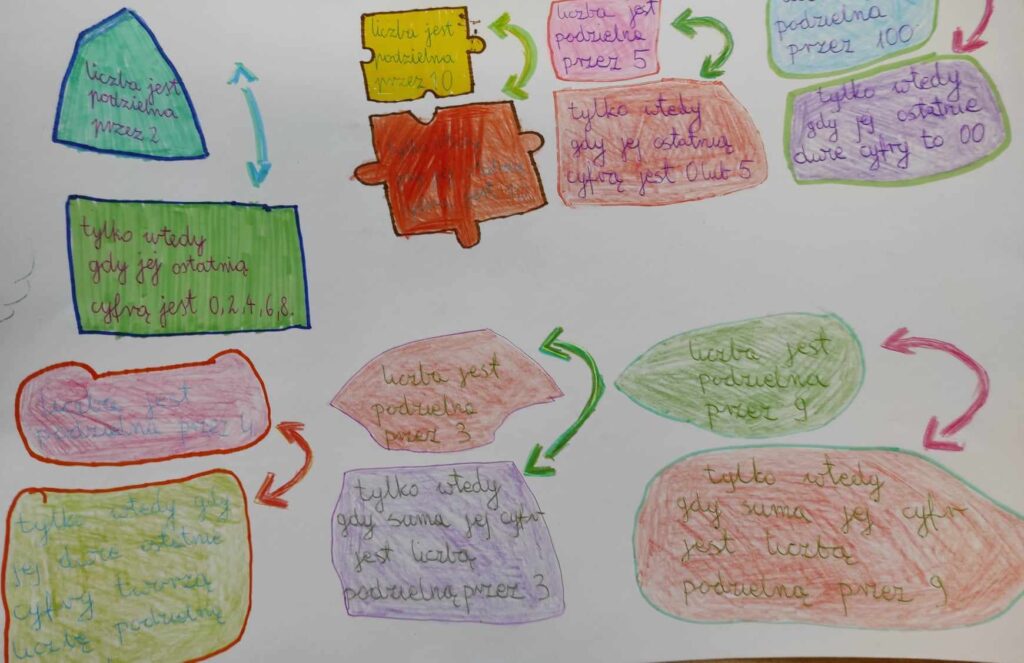 liczba jest
podzielna
przez 2
tylko wtedy
gdy jej ostatnią
cyfrą jest 0,2,4,6,8.
liczba jest
podzielna
przez 10
liczba jest
podzielna
przez 5
tylko wtedy
gdy jej ostatnią
cyfrą jest 0 lub 5
podzielna
przez 100
tylko wtedy
gdy jej ostatnie
dwie cyfry to 00
liczba jest
podzielna przez 4
tylko wtedy gdy
jej dwie ostatnie
cyfry tworzą
liczbę podzielną
liczba jest
podzielna
przez 3
tylko wtedy
gdy suma jej cyfr
jest liczbą
podzielną przez 3
liczba jest
podzielna
przez 9
tylko wtedy
gdy suma jej cyfr
jest liczbą
podzielną przez 9